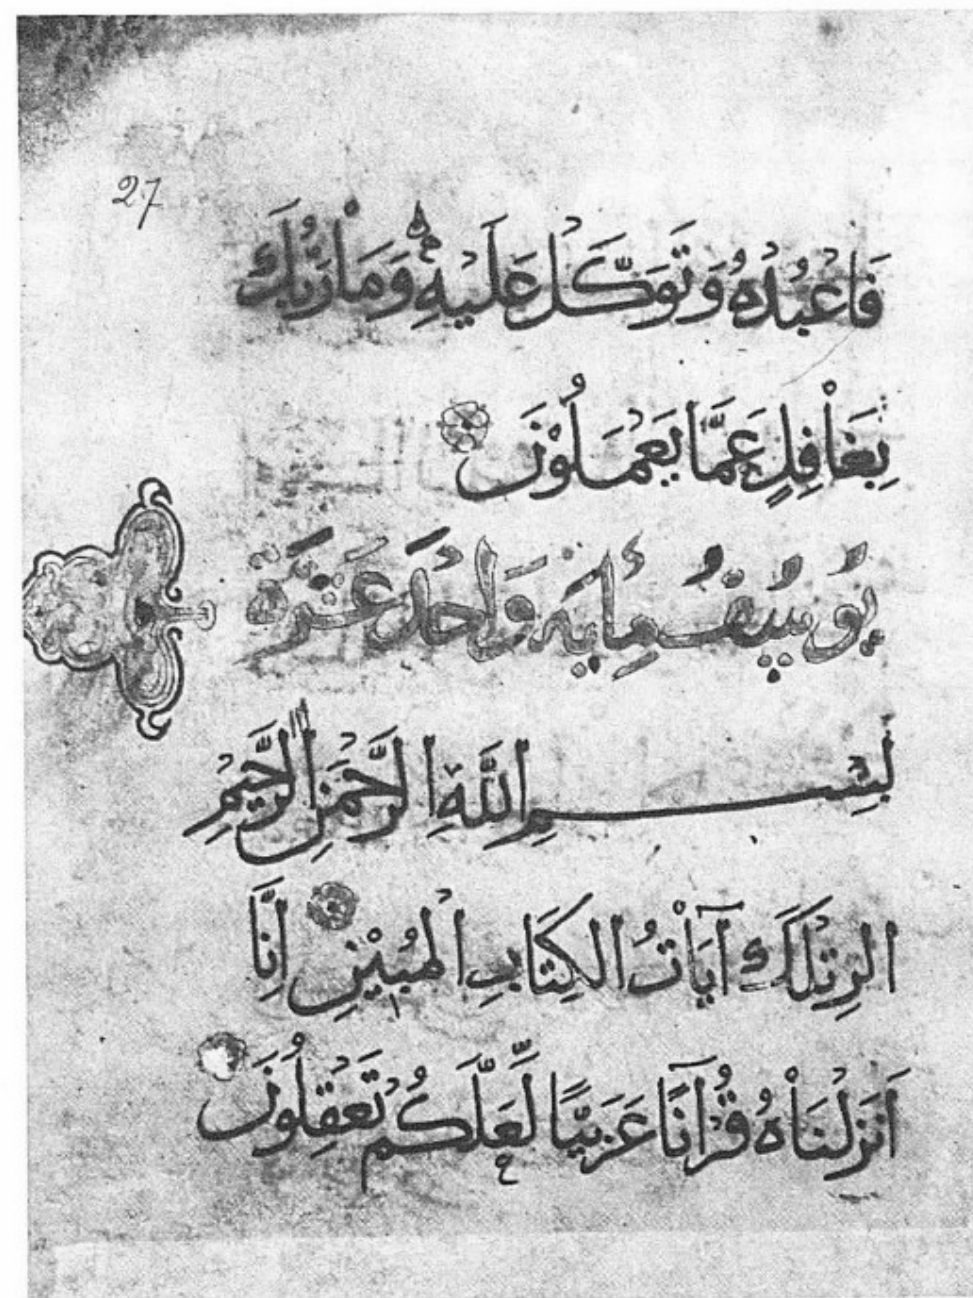 27
فَاعْبُدْهُ وَتَوَكَّلْ عَلَيْهِ وَمَا رَبُّكَ
بِغَافِلٍ عَمَّا يَعْمَلُوْنَ
يُوسُفُ مِايَة وَاحِدَ عَشَرَة
بِسْمِ اللَّهِ الرَّحْمَنِ الرَّحِيْمِ
الر تِلْكَ آيَاتُ الْكِتَابِ الْمُبِيْنِ اِنَّا
اَنْزَلْنَاهُ قُرْآنًا عَرَبِيًّا لَّعَلَّكُمْ تَعْقِلُوْنَ